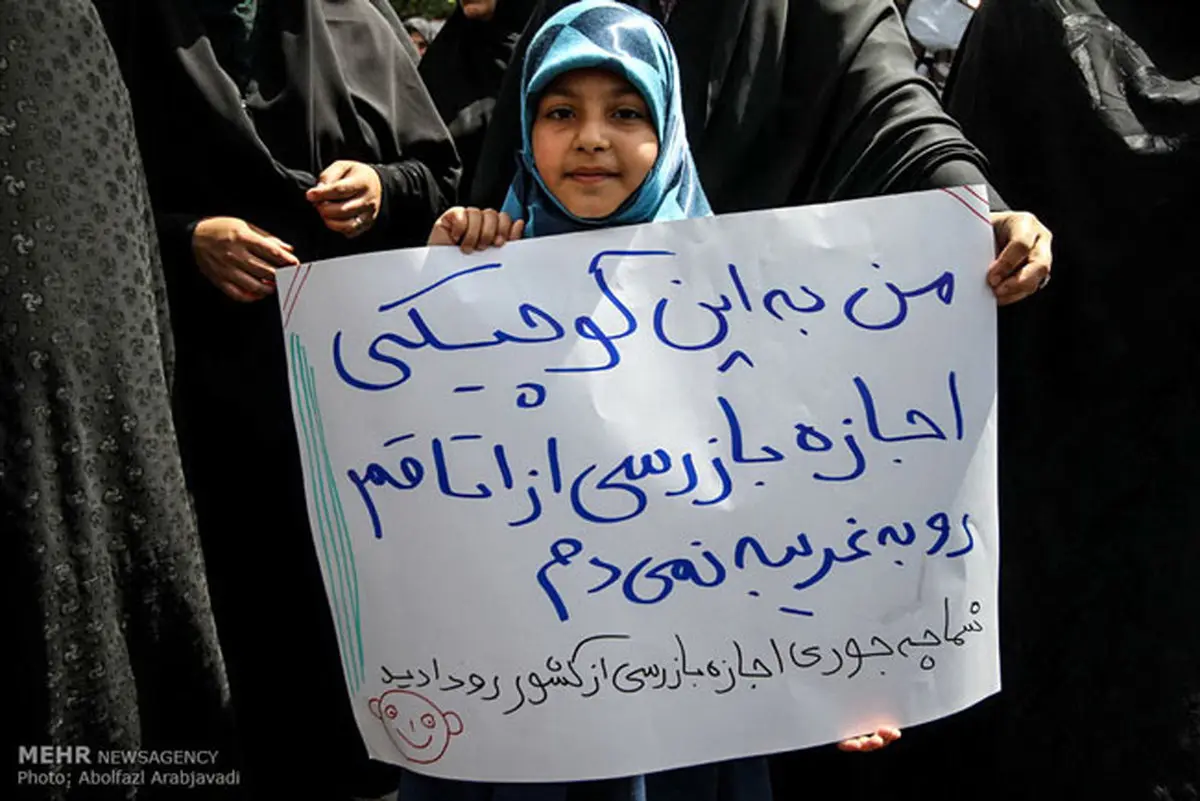 من به این کوچیکی
اجازه بازرسی از اتاقم
رو به غریبه نمی دم
شما چه جوری اجازه بازرسی از کشور رو دادید
MEHR NEWSAGENCY
Photo: Abolfazl Arabjavadi